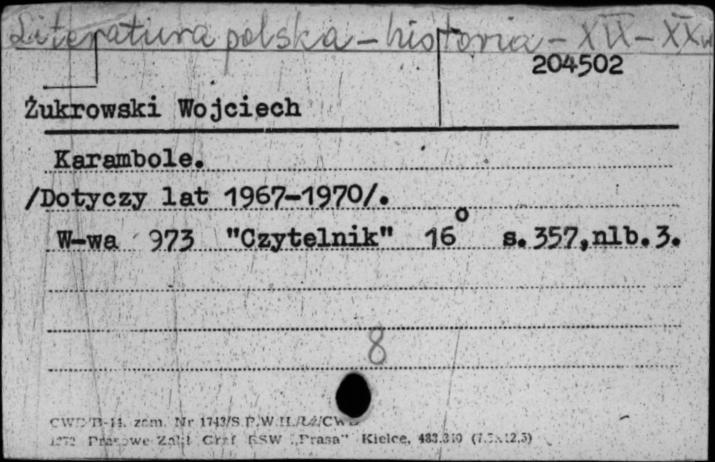 Literatura polska – historia – XIX – XX w
204502
Żukrowski Wojciech
Karambole.
/Dotyczy lat 1967-1970/.
W-wa 973 "Czytelnik" 16° s.357,nlb.3.
8
CWD/B-14. zam. Nr 1743/S P.W.H.
1972 Prasowe Zakł. Graf RSW "Prasa" Kielce, 483.340 (7,5x12,5)